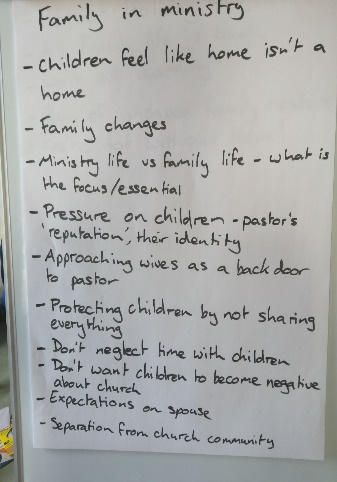 Family in ministry
- Children feel like home isn't a
home
- Family changes
- Ministry life vs family life - what is
the focus/essential
- Pressure on children - pastor's
'reputation', their identity
- Approaching wives as a back door
to pastor
- Protecting children by not sharing
everything
- Don't neglect time with children
- Don't want children to become negative
about church
- Expectations on spouse
- Separation from church community